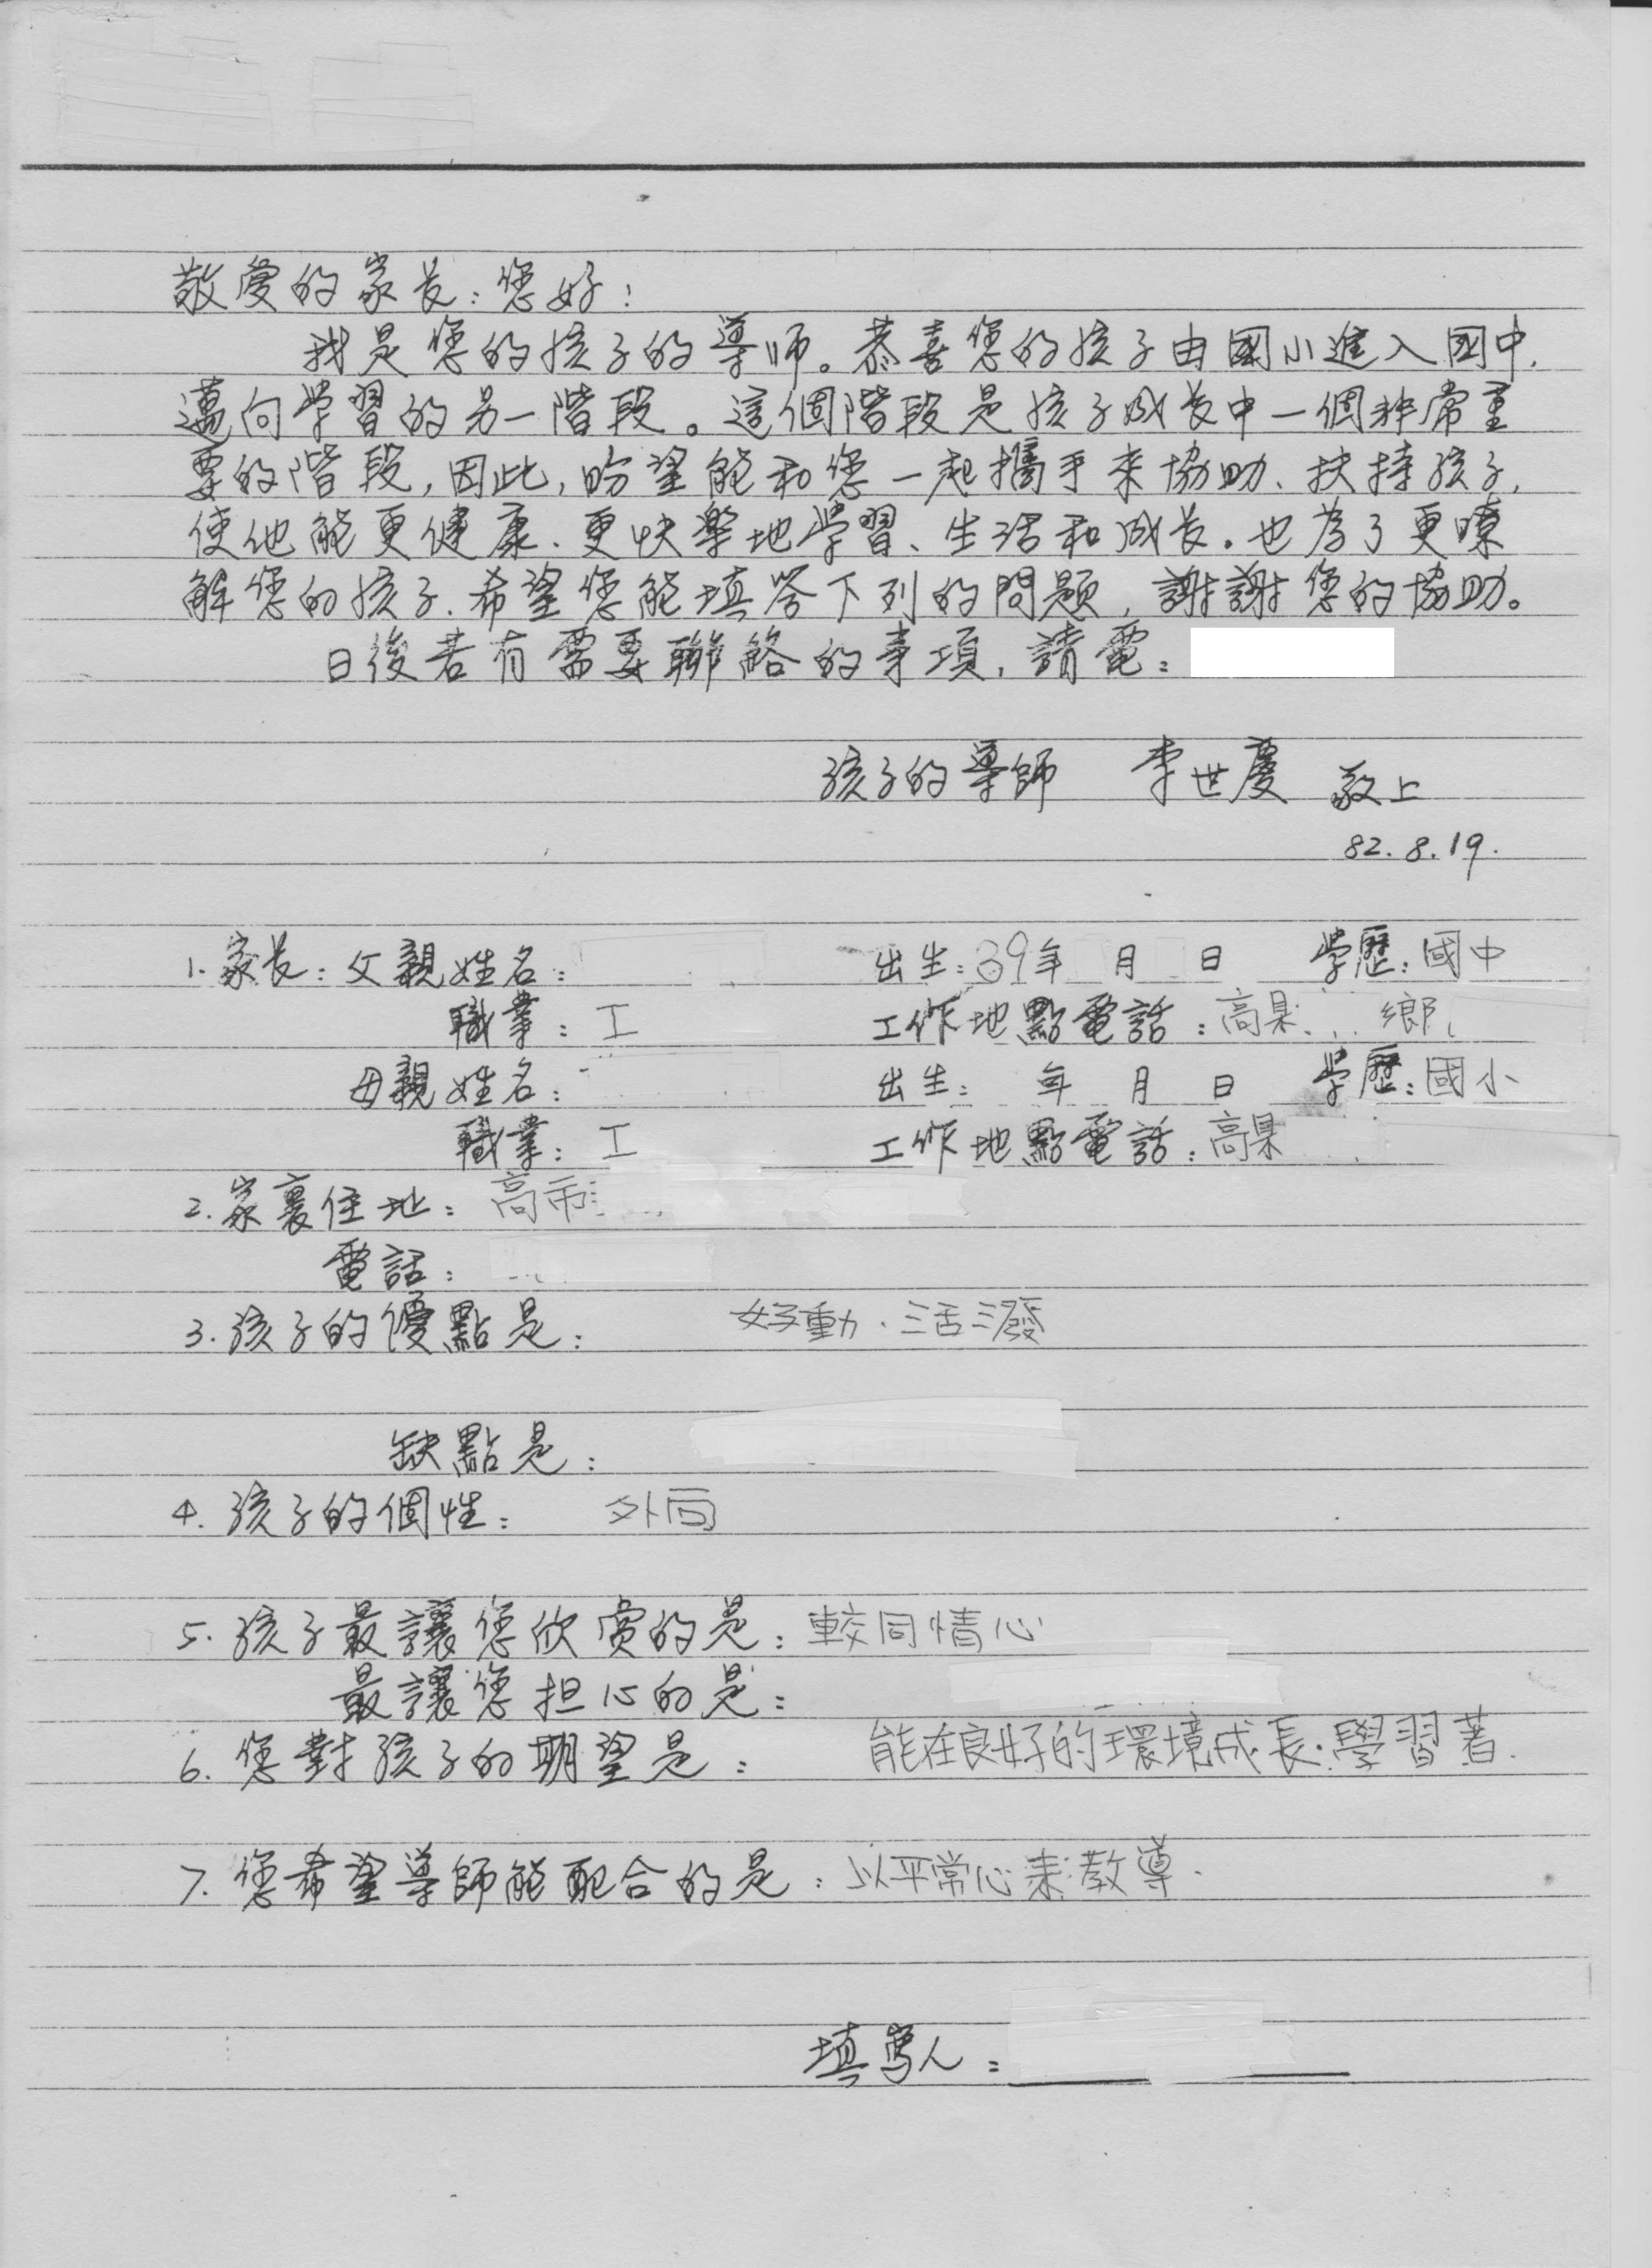 敬愛的家長：您好！
我是您的孩子的導师。恭喜您的孩子由國小進入國中，
邁向学習的另一階段。這個階段是孩子成长中一個非常重
要的階段，因此，盼望能和您一起攜手來協助、扶持孩子，
使他能更健康、更快樂地学習、生活和成长。也為了更瞭
解您的孩子，希望您能填答下列的問題，謝謝您的協助。
日後若有需要聯絡的事項，請電：
孩子的導師 李世慶 敬上
82.8.19.
1.家长：父親姓名： 出生：39年 月 日 学歷：國中
職業：工 工作地點電話：高県 鄉
母親姓名： 出生： 年 月 日 学歷：國小
職業：工 工作地點電話：高県
2.家裏住址：高市
電話：
3.孩子的優點是： 好動．活潑
缺點是：
4.孩子的個性： 外向
5.孩子最讓您欣賞的是：較同情心
最讓您担心的是：
6.您對孩子的期望是： 能在良好的環境成長．學習著．
7.您希望導師能配合的是：以平常心來教導．
填寫人：